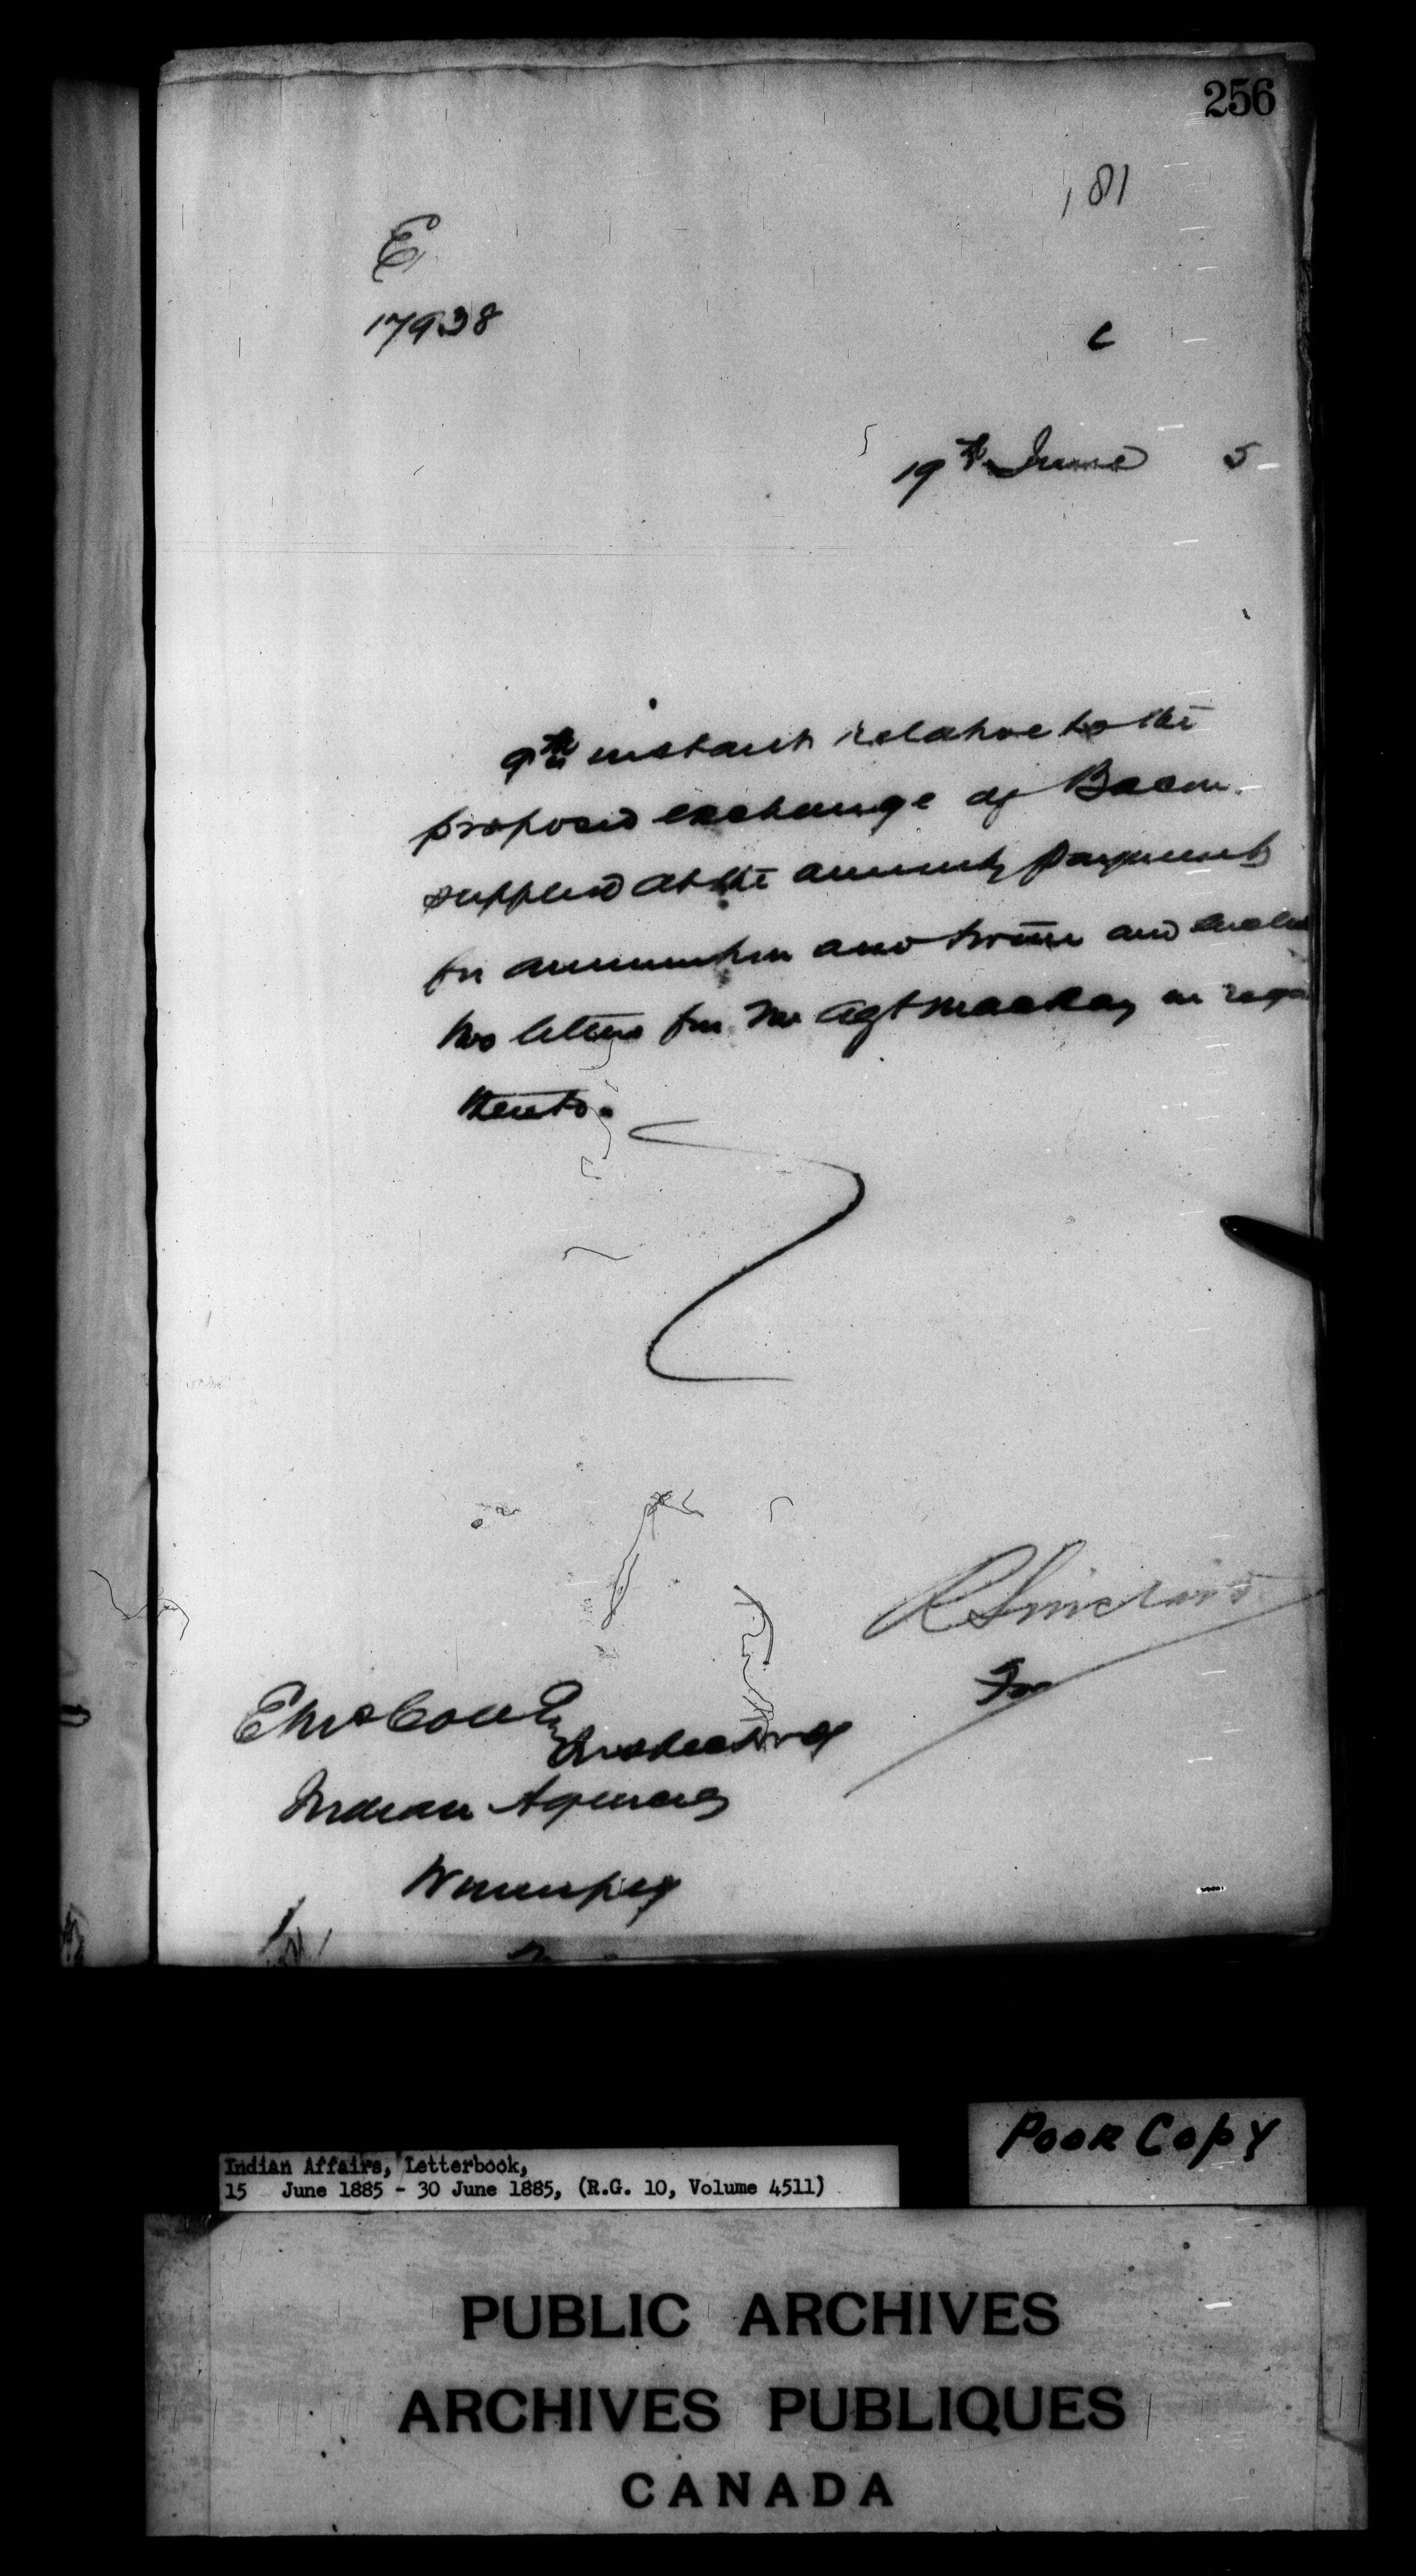 256
181
E
17938
C
19th June 5
9th instant relative to the
proposed exchange of Bacon
supplied at the annuity payments
for ammunition and twine and
two letters from Mr Agt Mackay in
thereto.
R Sinclair
For
E McColl Esq
Inspector of
Indian Agencies
Winnipeg
Poor Copy
Indian Affairs, Letterbook,
15 June 1885 - 30 June 1885, (R.G. 10, Volume 4511)
PUBLIC ARCHIVES
ARCHIVES PUBLIQUES
CANADA